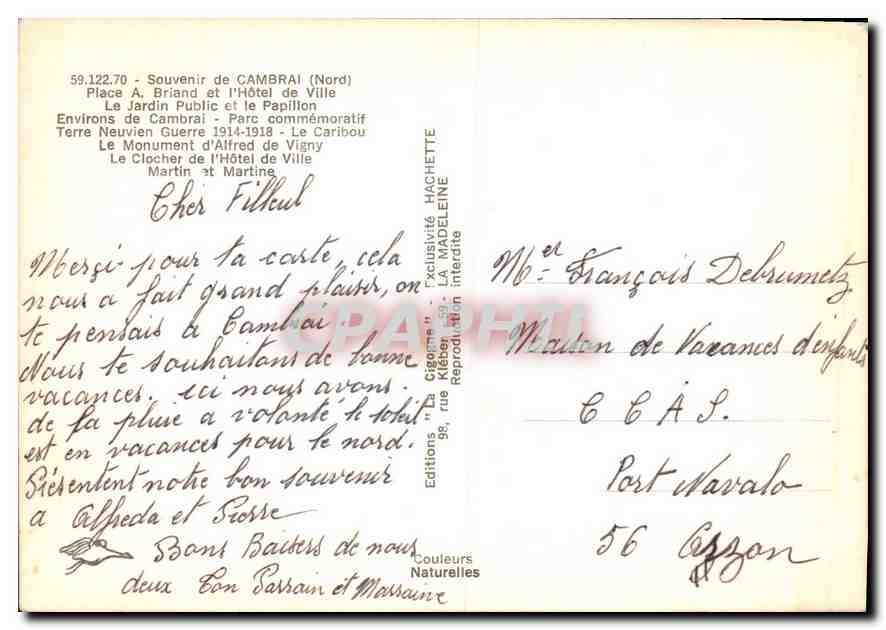 59.122.70 - Souvenir de CAMBRAI (Nord)
Place A. Briand et l'Hôtel de Ville
Le Jardin Public et le Papillon
Environs de Cambrai - Parc commémoratif
Terre Neuvien Guerre 1914-1918 - Le Caribou
Le Monument d'Alfred de Vigny
Le Clocher de l'Hôtel de Ville
Martin et Martine
Cher Filleul
Merçi pour ta carte, cela
nous a fait grand plaisir, on
te pensais a Cambrai.
Nous te souhaitons de bonne
vacances. ici nous avons
de la pluie a volonté le soleil
est en vacances pour le nord.
Présentent notre bon souvenir
a Alfreda et Pierre
Bons Baisers de nous
deux Ton Parrain et Marraine
Editions "La Cigogne" - Exclusivité HACHETTE
98, rue Kléber - 59 - LA MADELEINE
Reproduction interdite
Couleurs
Naturelles
CPAPHIL
Mer François Debrumetz
Maison de Vacances d'enfants
C C A S.
Port Navalo
56 Arzon